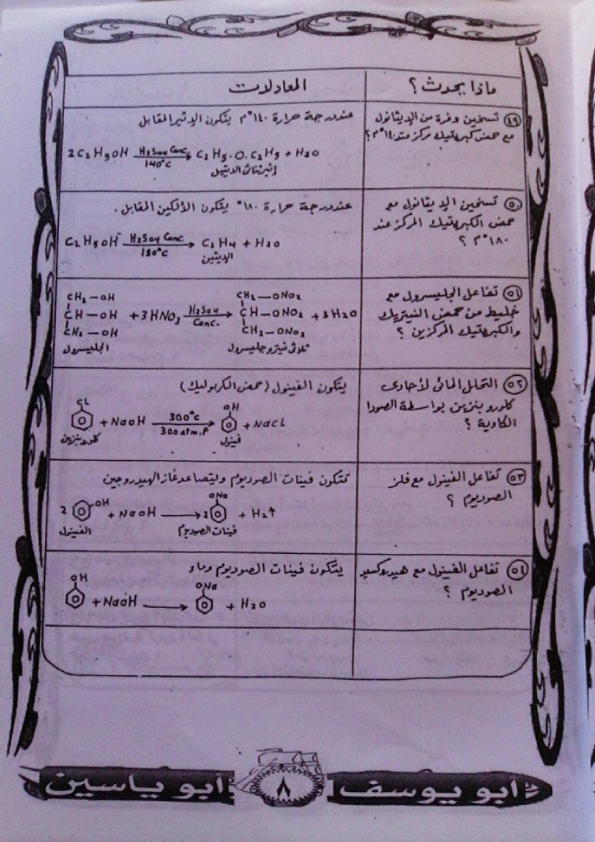 ماذا يحدث؟
المعادلات
٤٩ تسخين وفرة من الإيثانول
مع حمض كبريتيك مركز عند ١٤٠°م؟
عند درجة حرارة ١٤٠°م يتكون الإثير المقابل
2C2H5OH H2SO4 Conc. 140°C C2H5.O.C2H5 + H2O
إثير ثنائي الإيثيل
٥٠ تسخين الإيثانول مع
حمض الكبريتيك المركز عند
١٨٠°م ؟
عند درجة حرارة ١٨٠° يتكون الألكين المقابل.
C2H5OH H2SO4 Conc. 180°C C2H4 + H2O
الإيثين
٥١ تفاعل الجليسرول مع
خليط من حمض النيتريك
والكبريتيك المركزين ؟
CH2 — OH CH2 — ONO2
CH — OH + 3HNO3 H2SO4 Conc. CH — ONO2 + 3H2O
CH2 — OH CH2 — ONO2
الجليسرول ثلاثي نيترو جليسرول
٥٢ التحلل المائي لأحادى
كلورو بنزين بواسطة الصودا
الكاوية ؟
يتكون الفينول (حمض الكربوليك)
CL OH
+ NaOH 300°C 300 atm.P + NaCL
كلورو بنزين فينول
٥٣ تفاعل الفينول مع فلز
الصوديوم ؟
تتكون فينات الصوديوم ويتصاعد غاز الهيدروجين
OH ONa
2 + NaOH 2 + H2↑
الفينول فينات الصوديوم
٥٤ تفاعل الفينول مع هيدروكسيد
الصوديوم ؟
يتكون فينات الصوديوم وماء
OH ONa
+ NaOH + H2O
أبو يوسف ٨ أبو ياسين